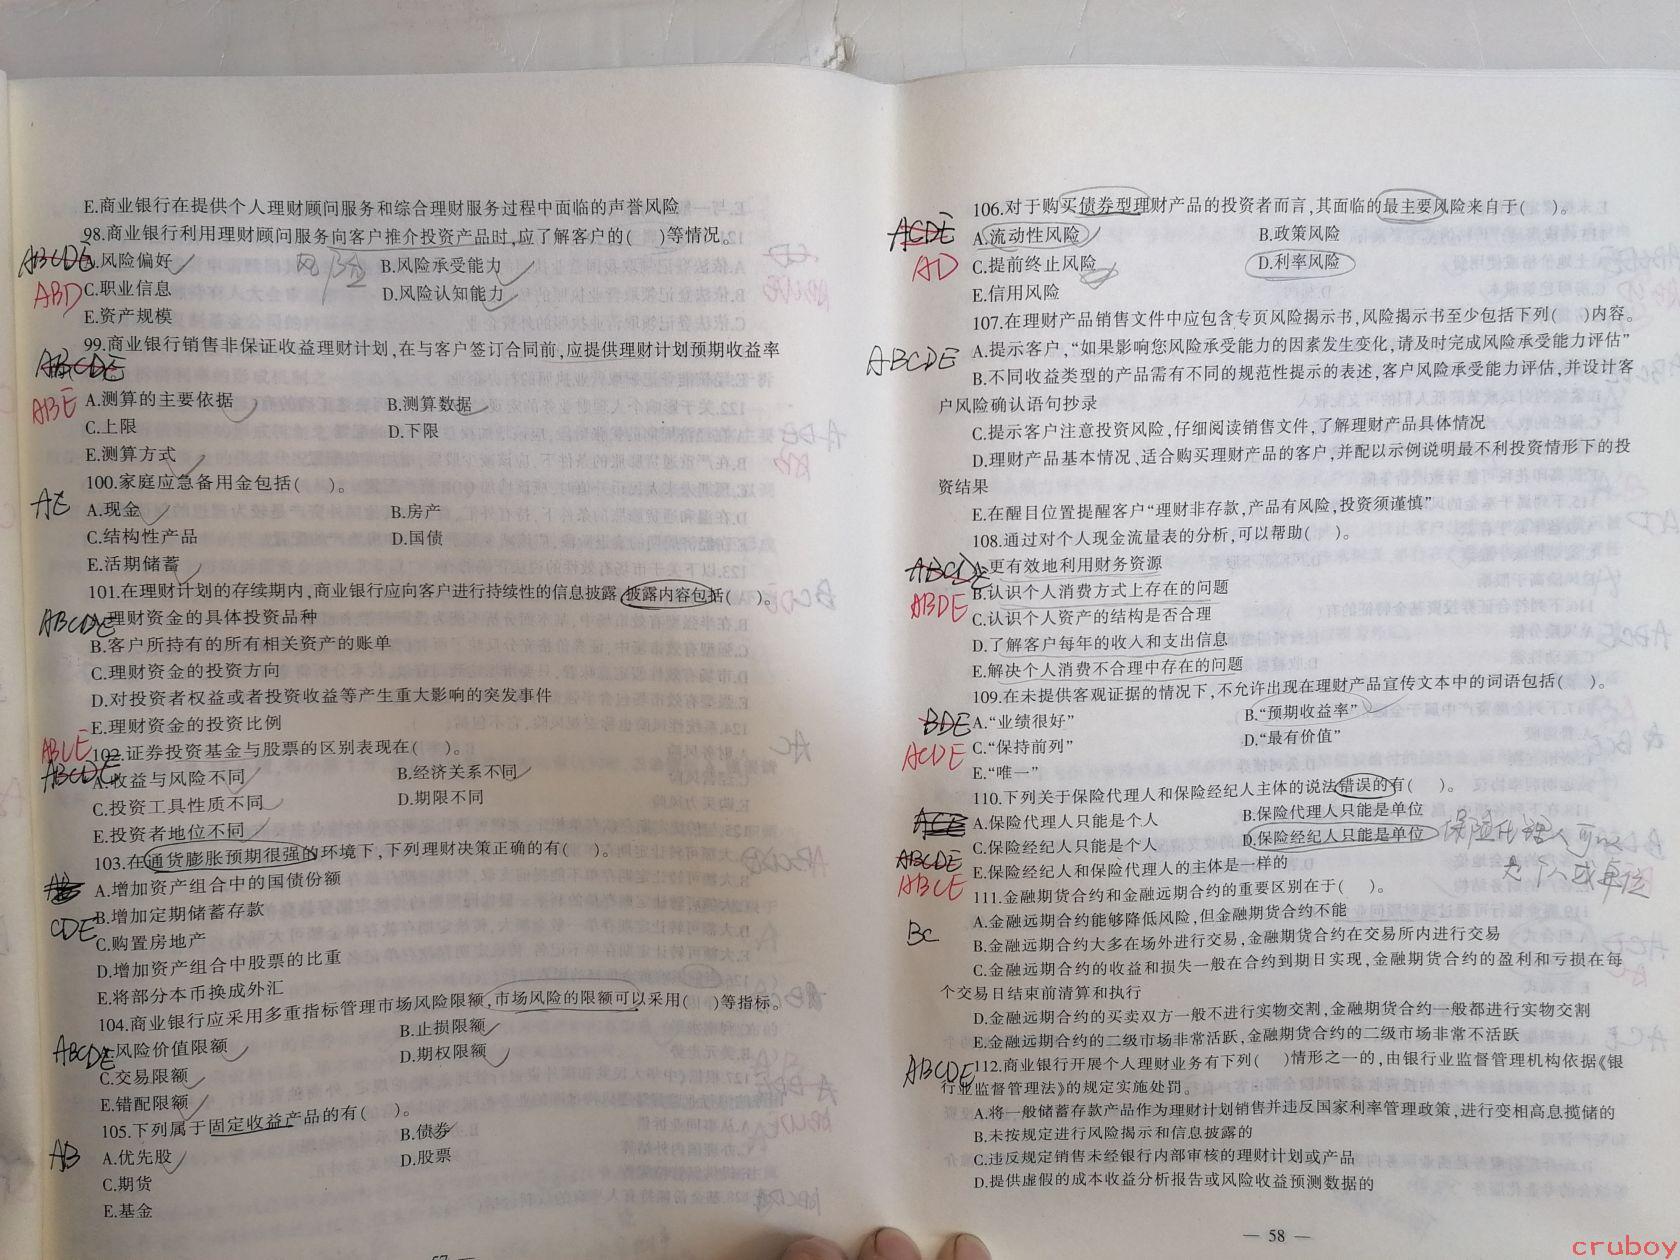 E.商业银行在提供个人理财顾问服务和综合理财服务过程中面临的声誉风险
98.商业银行利用理财顾问服务向客户推介投资产品时,应了解客户的(　　)等情况。
ABCDE
A.风险偏好　风险　B.风险承受能力
ABD
C.职业信息　D.风险认知能力
E.资产规模
99.商业银行销售非保证收益理财计划,在与客户签订合同前,应提供理财计划预期收益率
ABCDE
ABE
A.测算的主要依据　B.测算数据
C.上限　D.下限
E.测算方式
100.家庭应急备用金包括(　　)。
AE
A.现金　B.房产
C.结构性产品　D.国债
E.活期储蓄
101.在理财计划的存续期内,商业银行应向客户进行持续性的信息披露,披露内容包括(　　)。
ABCDE
理财资金的具体投资品种
B.客户所持有的所有相关资产的账单
C.理财资金的投资方向
D.对投资者权益或者投资收益等产生重大影响的突发事件
E.理财资金的投资比例
ABCE
102.证券投资基金与股票的区别表现在(　　)。
ABCDE
A.收益与风险不同　B.经济关系不同
C.投资工具性质不同　D.期限不同
E.投资者地位不同
103.在通货膨胀预期很强的环境下,下列理财决策正确的有(　　)。
A.增加资产组合中的国债份额
B.增加定期储蓄存款
CDE
C.购置房地产
D.增加资产组合中股票的比重
E.将部分本币换成外汇
104.商业银行应采用多重指标管理市场风险限额,市场风险的限额可以采用(　　)等指标。
ABCDE
风险价值限额　B.止损限额
C.交易限额　D.期权限额
E.错配限额
105.下列属于固定收益产品的有(　　)。
AB
A.优先股　B.债券
C.期货　D.股票
E.基金
106.对于购买债券型理财产品的投资者而言,其面临的最主要风险来自于(　　)。
ACDE
A.流动性风险　B.政策风险
AD
C.提前终止风险　D.利率风险
E.信用风险
107.在理财产品销售文件中应包含专页风险揭示书,风险揭示书至少包括下列(　　)内容。
ABCDE
A.提示客户,“如果影响您风险承受能力的因素发生变化,请及时完成风险承受能力评估”
B.不同收益类型的产品需有不同的规范性提示的表述,客户风险承受能力评估,并设计客
户风险确认语句抄录
C.提示客户注意投资风险,仔细阅读销售文件,了解理财产品具体情况
D.理财产品基本情况、适合购买理财产品的客户,并配以示例说明最不利投资情形下的投
资结果
E.在醒目位置提醒客户“理财非存款,产品有风险,投资须谨慎”
108.通过对个人现金流量表的分析,可以帮助(　　)。
ABCDE
A.更有效地利用财务资源
B.认识个人消费方式上存在的问题
ABDE
C.认识个人资产的结构是否合理
D.了解客户每年的收入和支出信息
E.解决个人消费不合理中存在的问题
109.在未提供客观证据的情况下,不允许出现在理财产品宣传文本中的词语包括(　　)。
BDE
A.“业绩很好”　B.“预期收益率”
ACDE
C.“保持前列”　D.“最有价值”
E.“唯一”
110.下列关于保险代理人和保险经纪人主体的说法错误的有(　　)。
A.保险代理人只能是个人　B.保险代理人只能是单位
C.保险经纪人只能是个人　D.保险经纪人只能是单位　保险代理人可以
是个人或单位
ABCDE
E.保险经纪人和保险代理人的主体是一样的
ABCE
111.金融期货合约和金融远期合约的重要区别在于(　　)。
A.金融远期合约能够降低风险,但金融期货合约不能
BC
B.金融远期合约大多在场外进行交易,金融期货合约在交易所内进行交易
C.金融远期合约的收益和损失一般在合约到期日实现,金融期货合约的盈利和亏损在每
个交易日结束前清算和执行
D.金融远期合约的买卖双方一般不进行实物交割,金融期货合约一般都进行实物交割
E.金融远期合约的二级市场非常活跃,金融期货合约的二级市场非常不活跃
ABCDE
112.商业银行开展个人理财业务有下列(　　)情形之一的,由银行业监督管理机构依据《银
行业监督管理法》的规定实施处罚。
A.将一般储蓄存款产品作为理财计划销售并违反国家利率管理政策,进行变相高息揽储的
B.未按规定进行风险揭示和信息披露的
C.违反规定销售未经银行内部审核的理财计划或产品
D.提供虚假的成本收益分析报告或风险收益预测数据的
— 58 —
cruboy